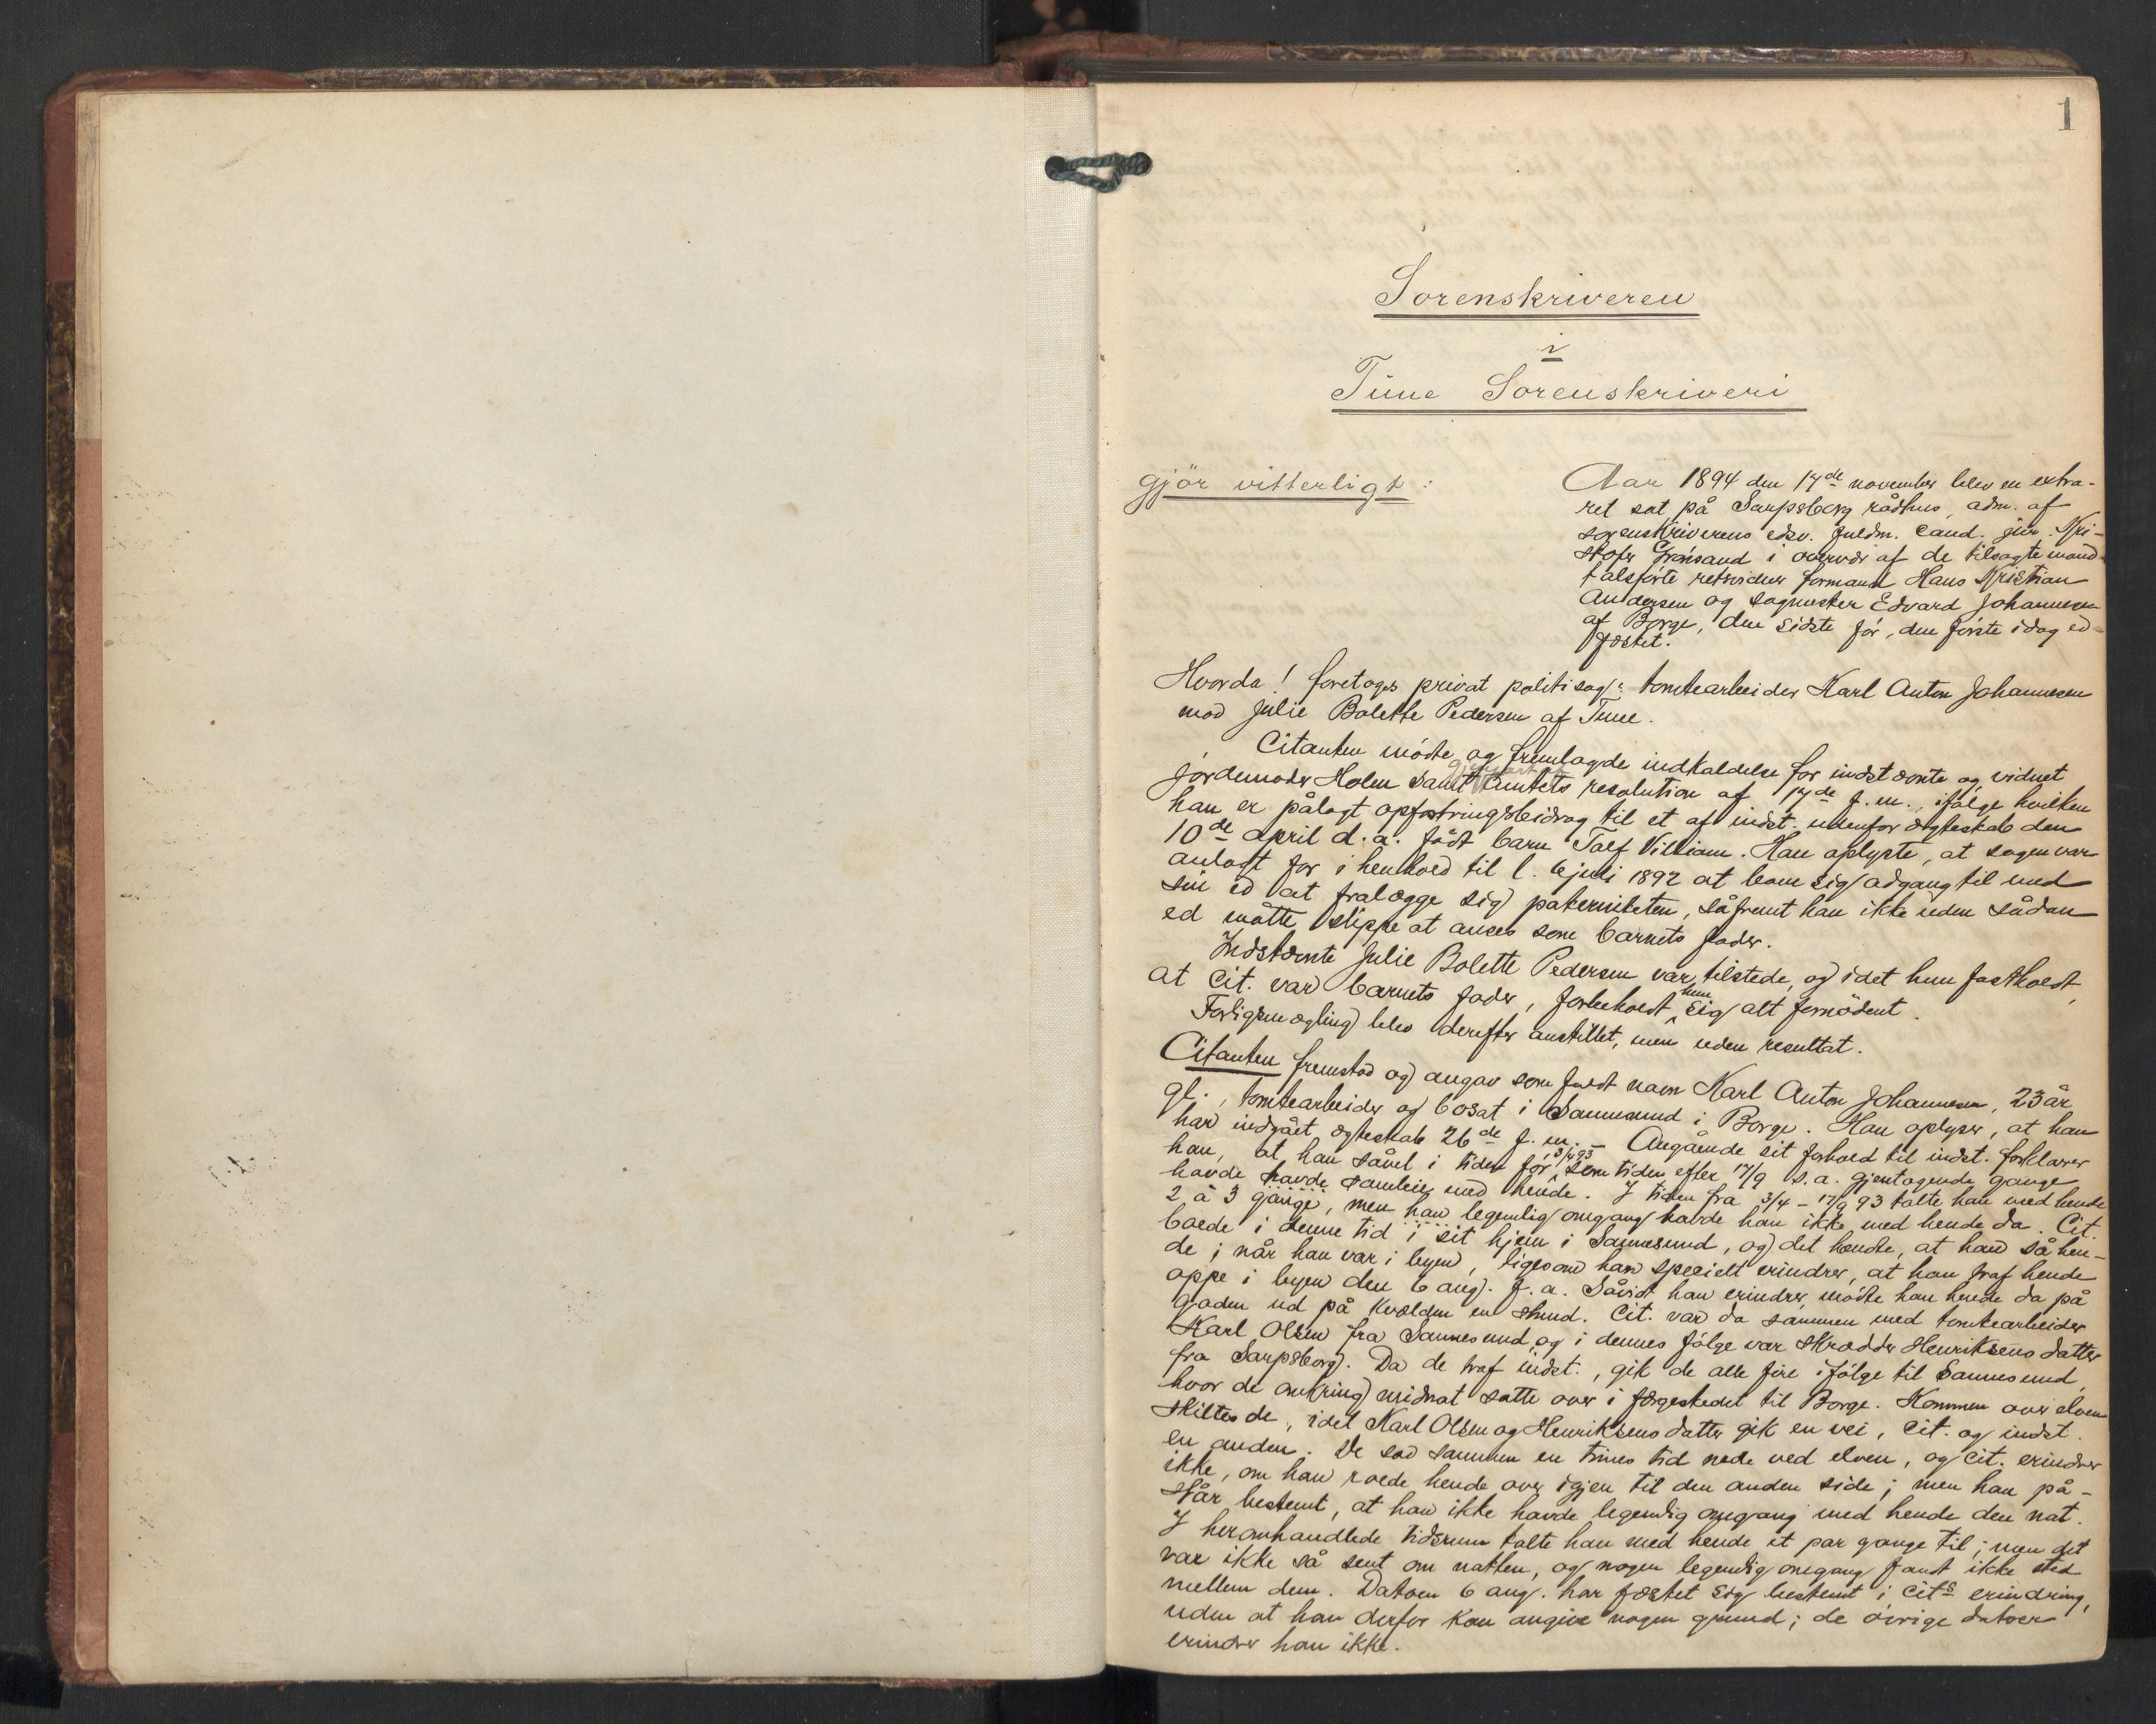 1
Sorenskriveren
i
Tune Sorenskriveri
gjör vitterligt:
Aar 1894 den 14de november blev en extra-
ret sat på Sarpsborg rådhus, adm. af
sorenskriverens edsv. fuldm. cand. jur. Kri-
stofer Grönsand i overvær af de tilsagte mand-
talsførte retsvidner formand Hans Kristian
Andersen og sagmester Edvard Johannesen
af Borge, den sidste før, den første idag ed-
fæstet.
Hvorda! foretoges privat politisag: tomtearbeider Karl Anton Johannesen
mod Julie Bolette Pedersen af Tune.
Citanten mødte og fremlagde indkaldelse for indstævnte og vidnet
jordemoder Holm samt amtets resolution af 17de f.m., ifølge hvilken
han er pålagt opfostringsbidrag til et af indst. udenfor ægteskab den
10de april d.a. født barn Tolf Villiam. Han oplyste, at sagen var
anlagt for i henhold til l. 6 juli 1892 at bane sig adgang til med
sin ed at fralægge sig paterniteten, såfremt han ikke uden sådan
ed måtte slippe at anses som barnets fader.
Indstævnte Julie Bolette Pedersen var tilstede, og idet hun fastholdt,
at cit. var barnets fader, forbeholdt hun sig alt fornødent.
Forligsmægling blev derefter anstillet, men uden resultat.
Citanten fremstod og angav som fuldt navn Karl Anton Johannesen, 23 år
gl., tomtearbeider og bosat i Sannesund i Borge. Han oplyser, at han
har indgået ægteskab 26de f.m. – Angående sit forhold til indst. forklarer
han, at han såvel i tiden før 3/4 93 som tiden efter 17/9 s.a. gjentagende gange
havde havde samleie med hende. I tiden fra 3/4 – 17/9 93 talte han med hende
2 à 3 gange, men han legemlig omgang havde han ikke med hende da. Cit.
boede i denne tid i sit hjem i Sannesund, og det hændte, at han så hen-
de, når han var i byen, ligesom han specielt erindrer, at han traf hende
oppe i byen den 6 aug. f.a. Såvidt han erindrer, mødte han hende da på
gaden ud på kvælden en stund. Cit. var da sammen med tomtearbeider
Karl Olsen fra Sannesund, og i dennes følge var skrædder Henriksens datter
fra Sarpsborg. Da de traf indst., gik de alle fire ifølge til Sannesund,
hvor de omkring midnat satte over i færgestedet til Borge. Kommen over elven
skiltes de, idet Karl Olsen og Henriksens datter gik en vei, cit. og indst.
en anden. De sad sammen en times tid nede ved elven, og cit. erindrer
ikke, om han roede hende over igjen til den anden side; men han på-
står bestemt, at han ikke havde legemlig omgang med hende den nat.
I heromhandlede tidsrum talte han med hende et par gange til; men det
var ikke så sent om natten, og nogen legemlig omgang fandt ikke sted
mellem dem. Datoen 6 aug. har fæstet sig bestemt i cits erindring,
uden at han derfor kan angive nogen grund; de øvrige datoer
erindrer han ikke.